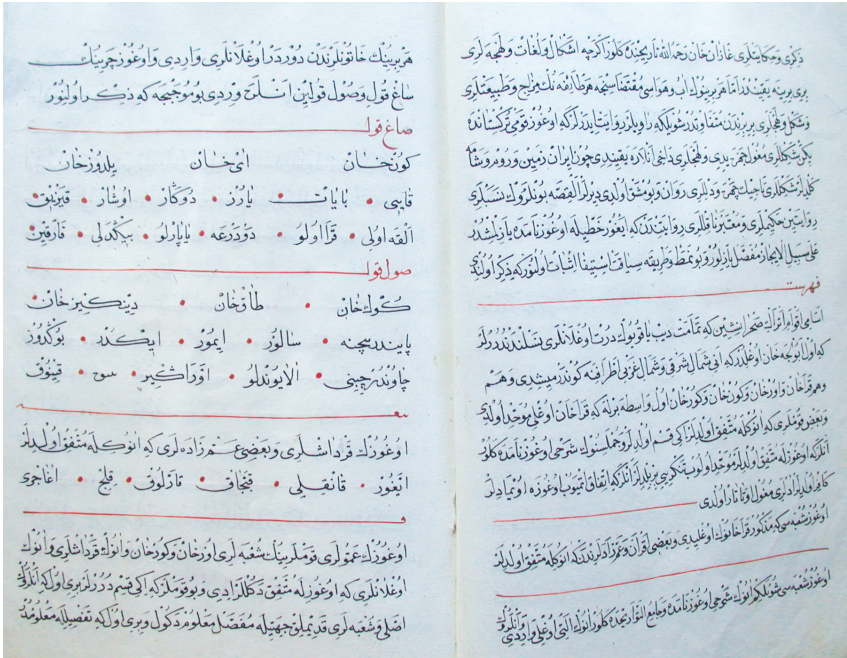 ذكری و حكایتلری غازان خان رحمه الله تاریخنده كلور اكرچه اشكال و لغات و لهجه لری
بری برینه یقیندر اما هر برینوك اب و هواسی مقتضاسنجه هر طایفه نك مزاج و طبیعتلری
و شكل و لهجلری بر برندن متفاوتدر شویلكه راویلر روایت ایدرلر كه اوغوز قومی تركستانده
شكللری مغول و لهجلری داخی انلاره یقیندی چون ایران زمین و روم و شام
كلدیلر شكللری تاجیك و دللری روان و یومشق اولدی دیرلر القصه بونلروك نسبلری
روایتین حكیملری و معتبر ناقللری روایتندن كه ایغور خطیله اوغوزنامه ده یازلمشدر
علی سبیل الایجاز مفصل یازیلور و بو نمط و طریقه سیاق استیفا اثبات اولنور كه ذكر اولندی
فهرست
اسامی اقوام اتراك صحرانشین كه تمامت دیب یاقوینوك درت اوغلانلری نسلندندورلر
كه اول ابولجه خان اوغلندر كه انی شمال شرقی و شمال غربی اطرافه كوندرمیشدی و هم
و هم قراخان و اورخان و كوزخان و كورخان اول واسطه برله كه قراخان اوغلی موحد اولدی
و بعض قوملری كه انوكله متفق اولدیلر ایكی قسم اولدیلر و جمله سنوك شرحی اوغوزنامه ده كلور
انلر كه اوغوزله متفق اولدیلر موحد اولوب تنكریی بر بلدیلر انلر كه اتفاق اتمیوب اوغوزه اویمادیلر
كافر اولدیلر ادلری مغول و تاتار اولدی
اوغوز شعبه سی كه مذكور قراخانوك اوغلیدی و بعضی اقران و عمزاده لرندن كه انوكله متفق اولدیلر
اوغوز شعبه سی شویلكم انوك شرحی اوغوزنامه ده و جامع التواریخده كلور انوك التی اوغلی واریدی و انلروك
هر برینك خاتونلرندن دوردر اوغلانلری واردی و اوغوز چریینك
ساغ قول و صول قولین انلره وردی بو موجبجه كه ذكر اولنور
صاغ قول
كون خان ای خان یلدوز خان
قایی • بایات • یازر • دوكار • اوشار • قیزیق
القه اولی • قرا اولو • دودرغه • یاپارلو • بیكدلی • قارقین
صول قول
كوك خان • طاق خان • دینكیز خان
پایندر بیچنه • سالور • ایمور • ایكدر • بوكدوز
چاوندر چبنی • الایوندلو • اوراكیر • • قینوق
اوغوزك قرداشلری و بعضی عم زاده لری كه انوكله متفق اولدیلر
ایغور • قانقلی • قبجاق • قارلوق • قلج • اغاجری
اوغوزك عمولری قوملرینك شعبه لری اورخان و كوزخان و انوك قرداشلری و انوك
اوغلانلری كه اوغوزله متفق دكللر ایدی و بو قوملر كه ایكی قسم دررلر بری اول كه انلرك
اصلی و شعبه لری قدیملق جهتیله مفصل معلوم دكول و بری اول كه تفصیله معلومدر